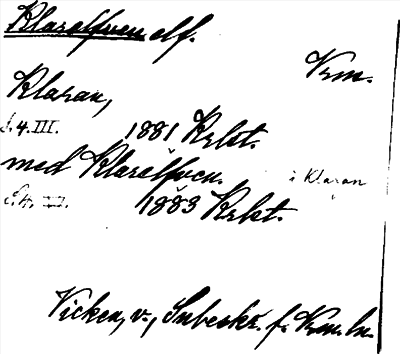 Klarelfven elf.
Vrm.
Klaran,
S. 4. III. 1881 Krbt.
med Klarelfven. i Klaran
S. 4. III. 1883 Krbt.
Vicken, v., Inbeskr. f. Vrm. ln.